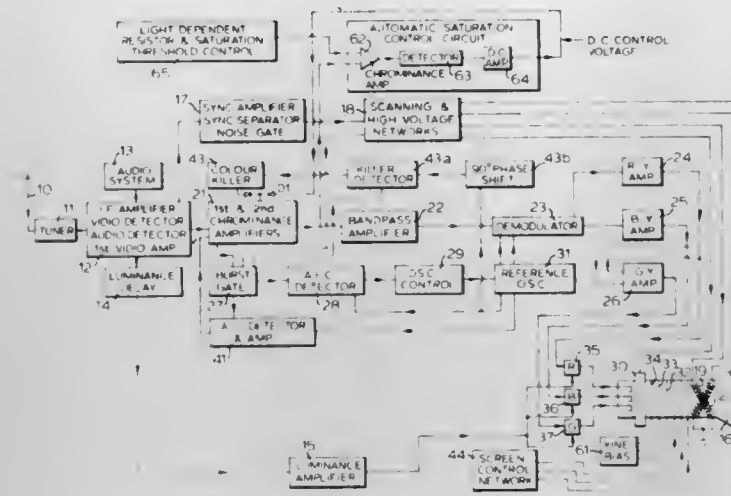 LIGHT DEPENDENT
RESISTOR & SATURATION
THRESHOLD CONTROL
65
AUTOMATIC SATURATION
CONTROL CIRCUIT
62
DETECTOR
63
D.C.
AMP
64
CHROMINANCE
AMP
D.C. CONTROL
VOLTAGE
17
SYNC AMPLIFIER
SYNC SEPARATOR
NOISE GATE
18
SCANNING &
HIGH VOLTAGE
NETWORKS
13
AUDIO
SYSTEM
43
COLOUR
KILLER
43a
KILLER
DETECTOR
43b
90° PHASE
SHIFT
24
R-Y
AMP
10
11
TUNER
12
I.F. AMPLIFIER
VIDIO DETECTOR
AUDIO DETECTOR
1ST VIDIO AMP
21
1ST & 2nd
CHROMINANCE
AMPLIFIERS
22
BANDPASS
AMPLIFIER
23
DEMODULATOR
25
B-Y
AMP
LUMINANCE
DELAY
14
BURST
GATE
27
DETECTOR
28
29
OSC
CONTROL
31
REFERENCE
OSC.
G-Y
AMP
26
DETECTOR
& AMP
41
35
R
36
B
37
G
30
34
33
32
19
16
61
KINE
BIAS
15
LUMINANCE
AMPLIFIER
44
SCREEN
CONTROL
NETWORK